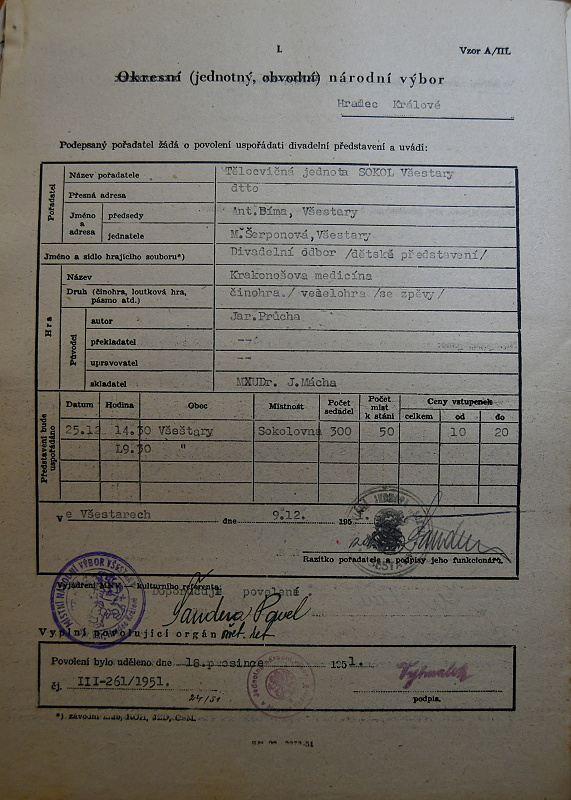 I.
Vzor A/III.
Okresní (jednotný, obvodní) národní výbor
Hradec Králové
Podepsaný pořadatel žádá o povolení uspořádati divadelní představení a uvádí:
Pořadatel
Název pořadatele Tělocvičná jednota SOKOL Všestary
Přesná adresa dtto
Jméno a adresa předsedy Ant.Bíma, Všestary
jednatele M.Šerponová,Všestary
Jméno a sídlo hrajícího souboru*) Divadelní odbor /dětská představení/
Hra
Název Krakonošova medicína
Druh (činohra, loutková hra, pásmo atd.) činohra / veselohra /se zpěvy/
Původci
autor Jar.Průcha
překladatel --
upravovatel --
skladatel MXUDr. J.Mácha
Představení bude uspořádáno
Datum Hodina Obec Místnost Počet sedadel Počet míst k stání Ceny vstupenek
celkem od do
25.12 14.30 Všestary Sokolovna 300 50 10 20
19.30 "
V e Všestarech dne 9.12. 195
Razítko pořadatele a podpisy jeho funkcionářů.
Vyjádření MNV — kulturního referenta:
Doporučuje povolení
MÍSTNÍ NÁRODNÍ VÝBOR VŠESTARY
Šandera Pavel
Vyplní povolující orgán
Povolení bylo uděleno dne 18.prosince 1951.
čj. III-261/1951.
podpis.
*) závodní klub, ROH, JZD, ČSM.